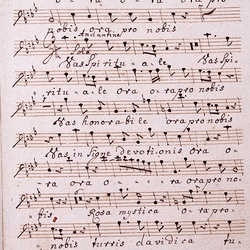 o ra o ra pro
nobis ora pro nobis
Andantine
Solo
Vas Spi ritu a le Vas Spi
ritu ale ora orapro nobis
Vas honorabile ora pro nobis
Vas insigne devotionis ora o
ra ora o ra orapro no
bis Rosa mystica orapro
nobis turris davidica tu